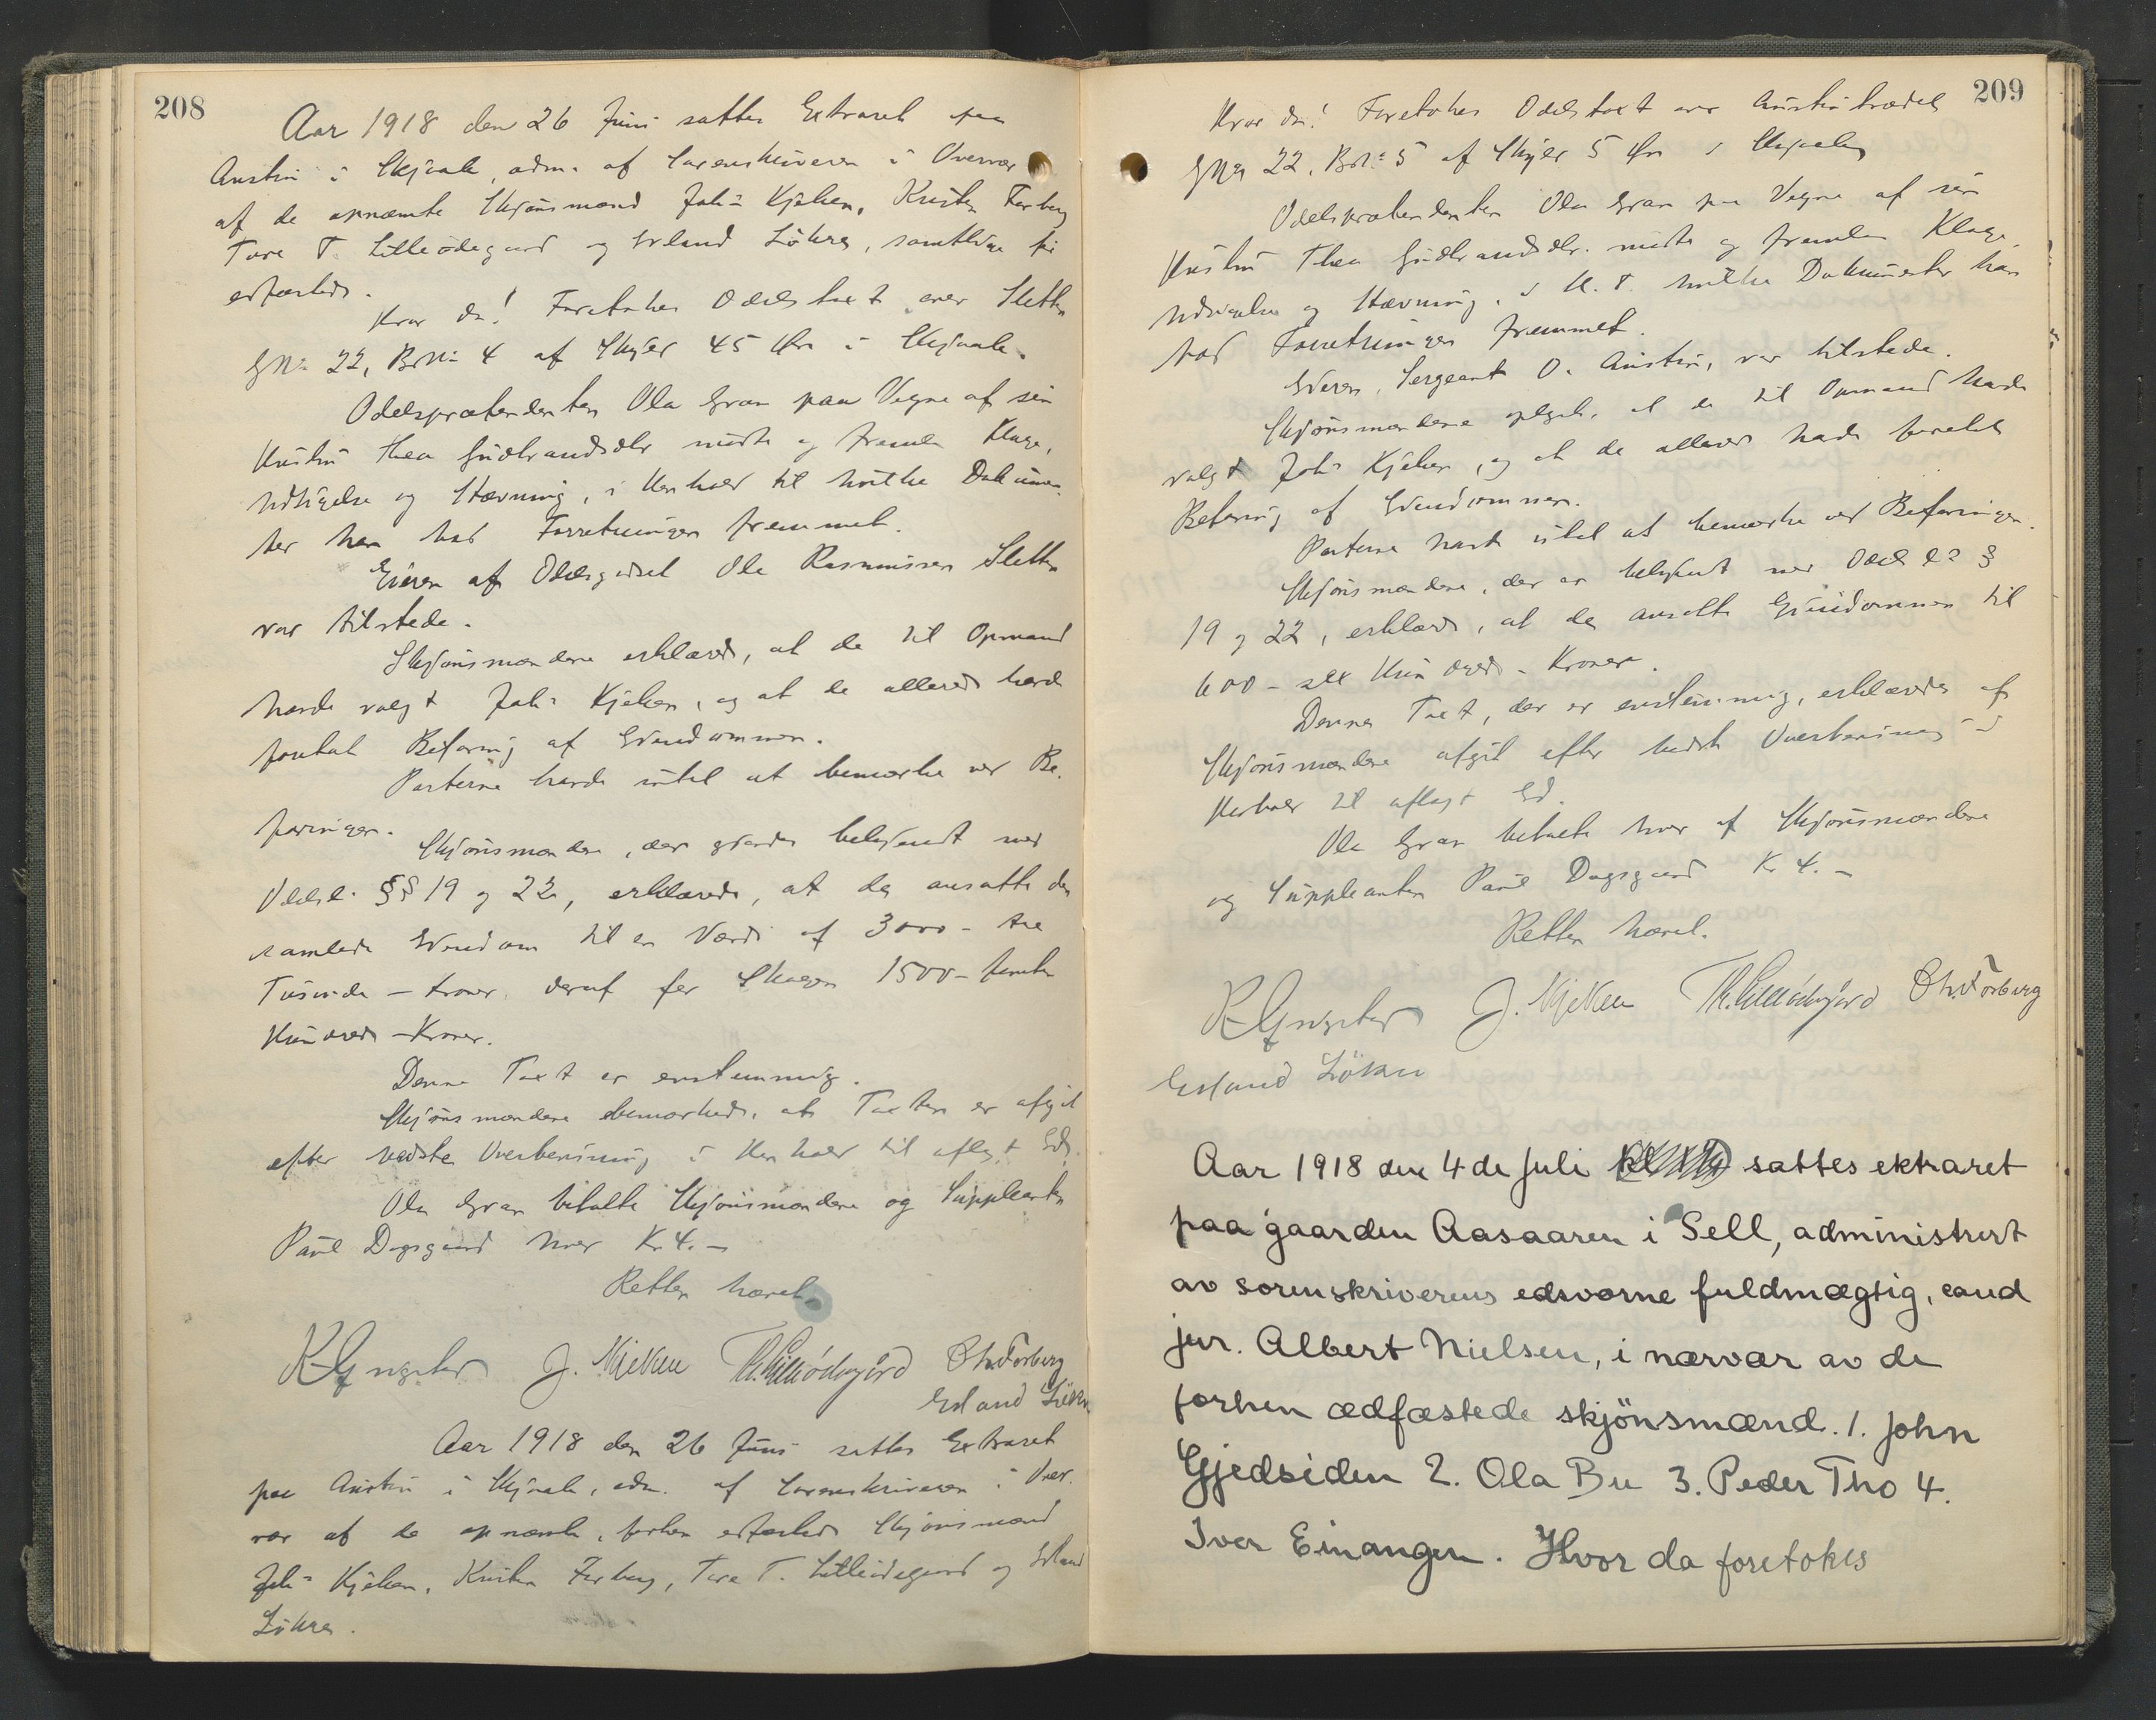 208
Aar 1918 den 26 Juni sattes Extraret paa
Austin i Skjaak, adm. af Sorenskriveren i Overvær
af de opnævnte Skjønsmænd Joh: Kjøken, Kristen Forberg
Tore T. Lilleødegaard og Erland Løkre, samtlige fr
edfæstede.
Hvor da! Foretokes Odelstaxt over Sletten
GNo 22, BNo 4 af Skyld 45 Øre i Skjaak.
Odelsprætendenten Ola Gran paa Vegne af sin
Hustru Thea Gudbrandsdtr mødte og fremla Klage,
Udsigelse og Stævning, i Henhold til hvilke Dokumen-
ter han bad Forretningen fremmet.
Eieren af Odelsgodset Ole Rasmussen Sletten
var tilstede.
Skjønsmændene erklærede, at de til Opmand
havde valgt Joh: Kjøken, og at de allerede havde
foretat Befaring af Eiendommen.
Parterne havde intet at bemærke ved Be-
faringen.
Skjønsmændene, der gjordes bekjendt med
Odelsl. §§ 19 og 22, erklærede, at de ansatte den
samlede Eiendom til en Værdi af 3000 - tre
Tusinde - Kroner, deraf for Skogen 1500 - femten
Hundrede - Kroner.
Denne Taxt er enstemmig.
Skjønsmændene bemærkede, at Taxten er afgit
efter bedste Overbevisning i Henhold til aflagt Ed.
Ola Gran betalte Skjønsmændene og Suppleanten
Paul Dagsgaard hver Kr 4. -
Retten hævet.
J. Kjøken Th. Lilleødegård Chr. Forberg
Erland Løkre
Aar 1918 den 26 Juni sattes Extraret
paa Austin i Skjaak, adm. af Sorenskriveren i Over-
vær af de opnævnte, forhen edfæstede Skjønsmænd
Joh: Kjøken, Kristen Forberg, Tore T. Lilleødegaard og Erland
Løkre.
209
Hvor da! Foretokes Odelstaxt over Austinbrædet
GNo 22, BNo 5 af Skyld 5 Øre i Skjaak
Odelsprætendenten Ola Gran paa Vegne af sin
Hustru Thea Gudbrandsdtr. mødte og fremla Klage,
Udsigelse og Stævning, i H. T. hvilke Dokumenter han
bad Forretningen fremmet.
Eieren, Sergeant O. Austin, var tilstede.
Skjønsmændene oplyste, at de til Opmand havde
valgt Joh: Kjøken, og at de allerede havde foretat
Befaring af Eiendommen.
Parterne havde intet at bemærke ved Befaringen.
Skjønsmændene, der er bekjendt med Odelsl. §
19 og 22, erklærede, at de ansatte Eiendommen til
600 - sex Hundrede - Kroner.
Denne Taxt, der er enstemmig, erklæredes af
Skjønsmændene afgit efter bedste Overbevisning i
Henhold til aflagt Ed.
Ola Gran betalte hver af Skjønsmændene
og Suppleanten Paul Dagsgaard Kr 4. -
Retten hævet.
J. Kjøken Th. Lilleødegård Chr. Forberg
Erland Løkre
Aar 1918 den 4de Juli sattes ektraret
paa gaarden Aasaaren i Sell, administrert
av sorenskriverens edsvorne fuldmægtig, cand
jur. Albert Nielsen, i nærvær av de
forhen ædfæstede skjönsmænd. 1. John
Gjedsiden 2. Ola Bu 3. Peder Tho 4.
Iver Einangen. Hvor da foretokes